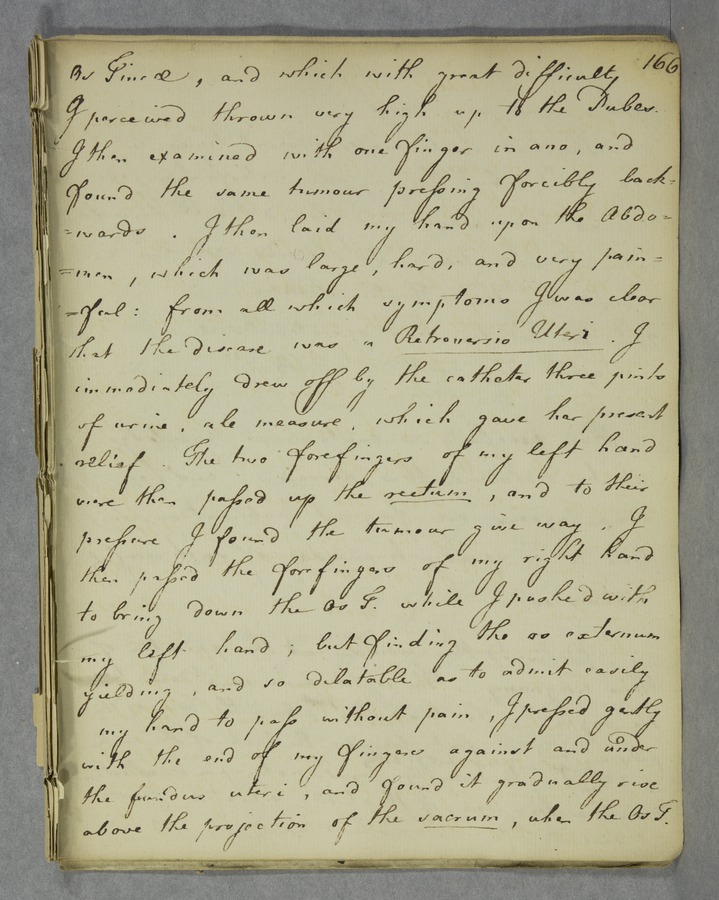 166
Os Tincæ, and which with great difficulty
I perceived thrown very high up to the Pubes.
I then examined with one finger in ano, and
found the same tumour pressing forcibly back=
=wards. I then laid my hand upon the Abdo=
=men, which was large, hard, and very pain=
=ful: from all which symptoms I was clear
that the disease was a Retroversio Uteri. I
immediately drew off by the catheter three pints
of urine, ale measure, which gave her present
relief. The two forefingers of my left hand
were then passed up the rectum, and to their
pressure I found the tumour give way. I
then passed the forefingers of my right hand
to bring down the Os T. while I pushed with
my left hand; but finding the os externum
yielding, and so dilatable as to admit easily
my hand to pass without pain, I pressed gently
with the end of my fingers against and under
the fundus uteri, and found it gradually rise
above the projection of the sacrum, when the Os T.